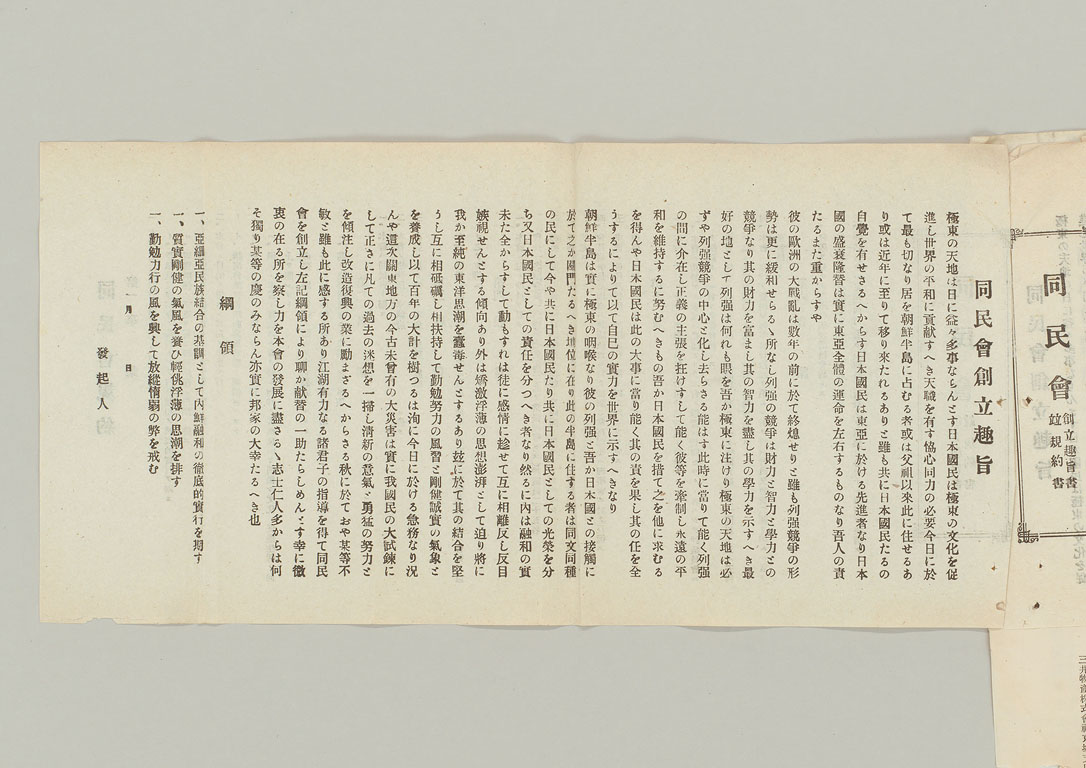 同民會 創立趣旨書
竝規約書
同民會創立趣旨
極東の天地は日に益々多事ならんとす日本國民は極東の文化を促
進し世界の平和に貢献すへき天職を有す恊心同力の必要今日に於
て最も切なり居を朝鮮半島に占むる者或は父祖以來此に住せるあ
り或は近年に至りて移り來たれるありと雖も共に日本國民たるの
自覺を有せさるへからす日本國民は東亞に於ける先進者なり日本
國の盛衰隆替は實に東亞全體の運命を左右するものなり吾人の責
たるまた重からすや
彼の歐洲の大戰亂は數年の前に於て終熄せりと雖も列强競爭の形
勢は更に緩和せらるゝ所なし列强の競爭は財力と智力と學力との
競爭なり其の財力を富まし其の智力を盡し其の學力を示すへき最
好の地として列强は何れも眼を吾か極東に注けり極東の天地は必
すや列强競爭の中心と化し去らさる能はす此時に當りて能く列强
の間に介在し正義の主張を抂けすして能く彼等を牽制し永遠の平
和を維持するに努むへきもの吾か日本國民を措て之を他に求むる
を得んや日本國民は此の大事に當り能く其の責を果し其の任を全
うするによりて以て自己の實力を世界に示すへきなり
朝鮮半島は實に極東の咽喉なり彼の列强と吾か日本國との接觸に
於て之か關門たるへき地位に在り此の半島に住する者は同文同種
の民にして今や共に日本國民たり共に日本國民としての光榮を分
ち又日本國民としての責任を分つへき者なり然るに内は融和の實
未た全からすして動もすれは徒に感情に趁せて互に相離反し反目
嫉視せんとする傾向あり外は矯激浮薄の思想澎湃として迫り將に
我か至純の東洋思潮を蠧毒せんとするあり玆に於て其の結合を堅
うし互に相砥礪し相扶持して勤勉努力の風習と剛健誠實の氣象と
を養成し以て百年の大計を樹つるは洵に今日に於ける急務なり况
んや這次關東地方の今古未曾有の大災害は實に我國民の大試鍊に
して正さに凡ての過去の迷想を一掃し淸新の意氣と勇猛の努力と
を傾注し改造復興の業に勵まさるへからさる秋に於ておや某等不
敏と雖も此に感する所あり江湖有力なる諸君子の指導を得て同民
會を創立し左記綱領により聊か献替の一助たらしめんとす幸に微
衷の在る所を察し力を本會の發展に盡さるゝ志士仁人多からは何
そ獨り某等の慶のみならん亦實に邦家の大幸たるへき也
綱領
一、亞細亞民族結合の基調として内鮮融和の徹底的實行を期す
一、質實剛健の氣風を養ひ輕佻浮薄の思潮を排す
一、勤勉力行の風を興して放縱惰弱の弊を戒む
月 日
發起人